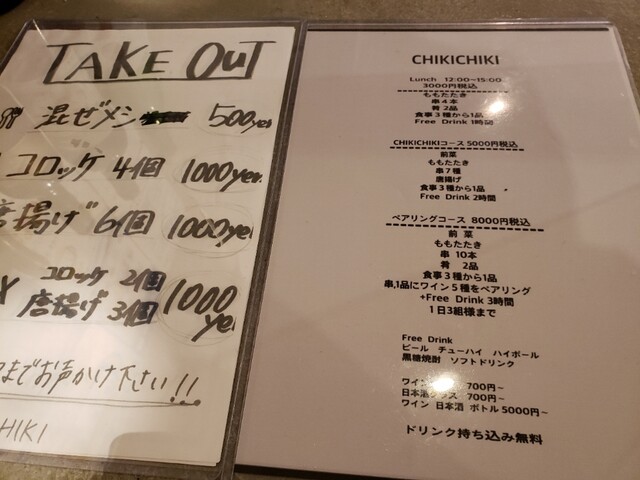 TAKE OUT
混ぜメシ 500yen
コロッケ 4個 1000yen
唐揚げ 6個 1000ye
コロッケ 2個
唐揚げ 3個 1000
ye
までお声かけ下さい!!
HIKI
CHIKICHIKI
Lunch 12:00~15:00
3000円税込
ももたたき
串4本
肴 2品
食事3種から1品
Free Drink 1時間
CHIKICHIKIコース 5000円税込
前菜
ももたたき
串7種
唐揚げ
食事3種から1品
Free Drink 2時間
ペアリングコース 8000円税込
前 菜
ももたたき
串 10本
肴 2品
食事3種から1品
串1品にワイン5種をペアリング
+Free Drink 3時間
1日3組様まで
Free Drink
ビール チューハイ ハイボール
黒糖焼酎 ソフトドリンク
ワイン 700円~
日本酒グラス 700円~
ワイン 日本酒 ボトル 5000円~
ドリンク持ち込み無料